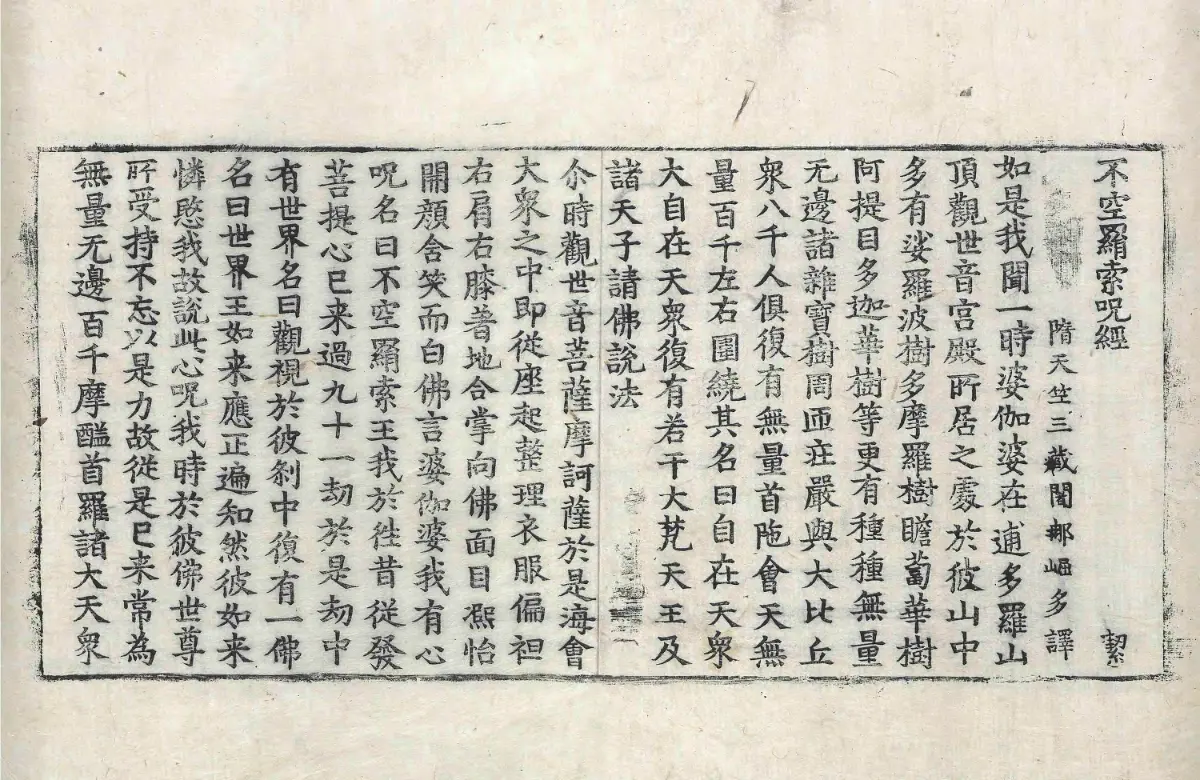 不空羂索呪經 絜
隋天竺三藏闍那崛多譯
如是我聞一時婆伽婆在逋多羅山
頂觀世音宮殿所居之處於彼山中
多有娑羅波樹多摩羅樹瞻蔔華樹
阿提目多迦華樹等更有種種無量
无邊諸雜寶樹周匝莊嚴與大比丘
衆八千人俱復有無量首陁會天無
量百千左右圍繞其名曰自在天衆
大自在天衆復有若干大梵天王及
諸天子請佛說法
尒時觀世音菩薩摩訶薩於是海會
大衆之中即從座起整理衣服偏袒
右肩右膝著地合掌向佛面目熈怡
開顏含笑而白佛言婆伽婆我有心
呪名曰不空羂索王我於徃昔從發
菩提心已来過九十一劫於是劫中
有世界名曰觀視於彼刹中復有一佛
名曰世界王如来應正遍知然彼如来
憐愍我故說此心呪我時於彼佛世尊
所受持不忘以是力故從是已来常為
無量无邊百千摩醯首羅諸大天衆